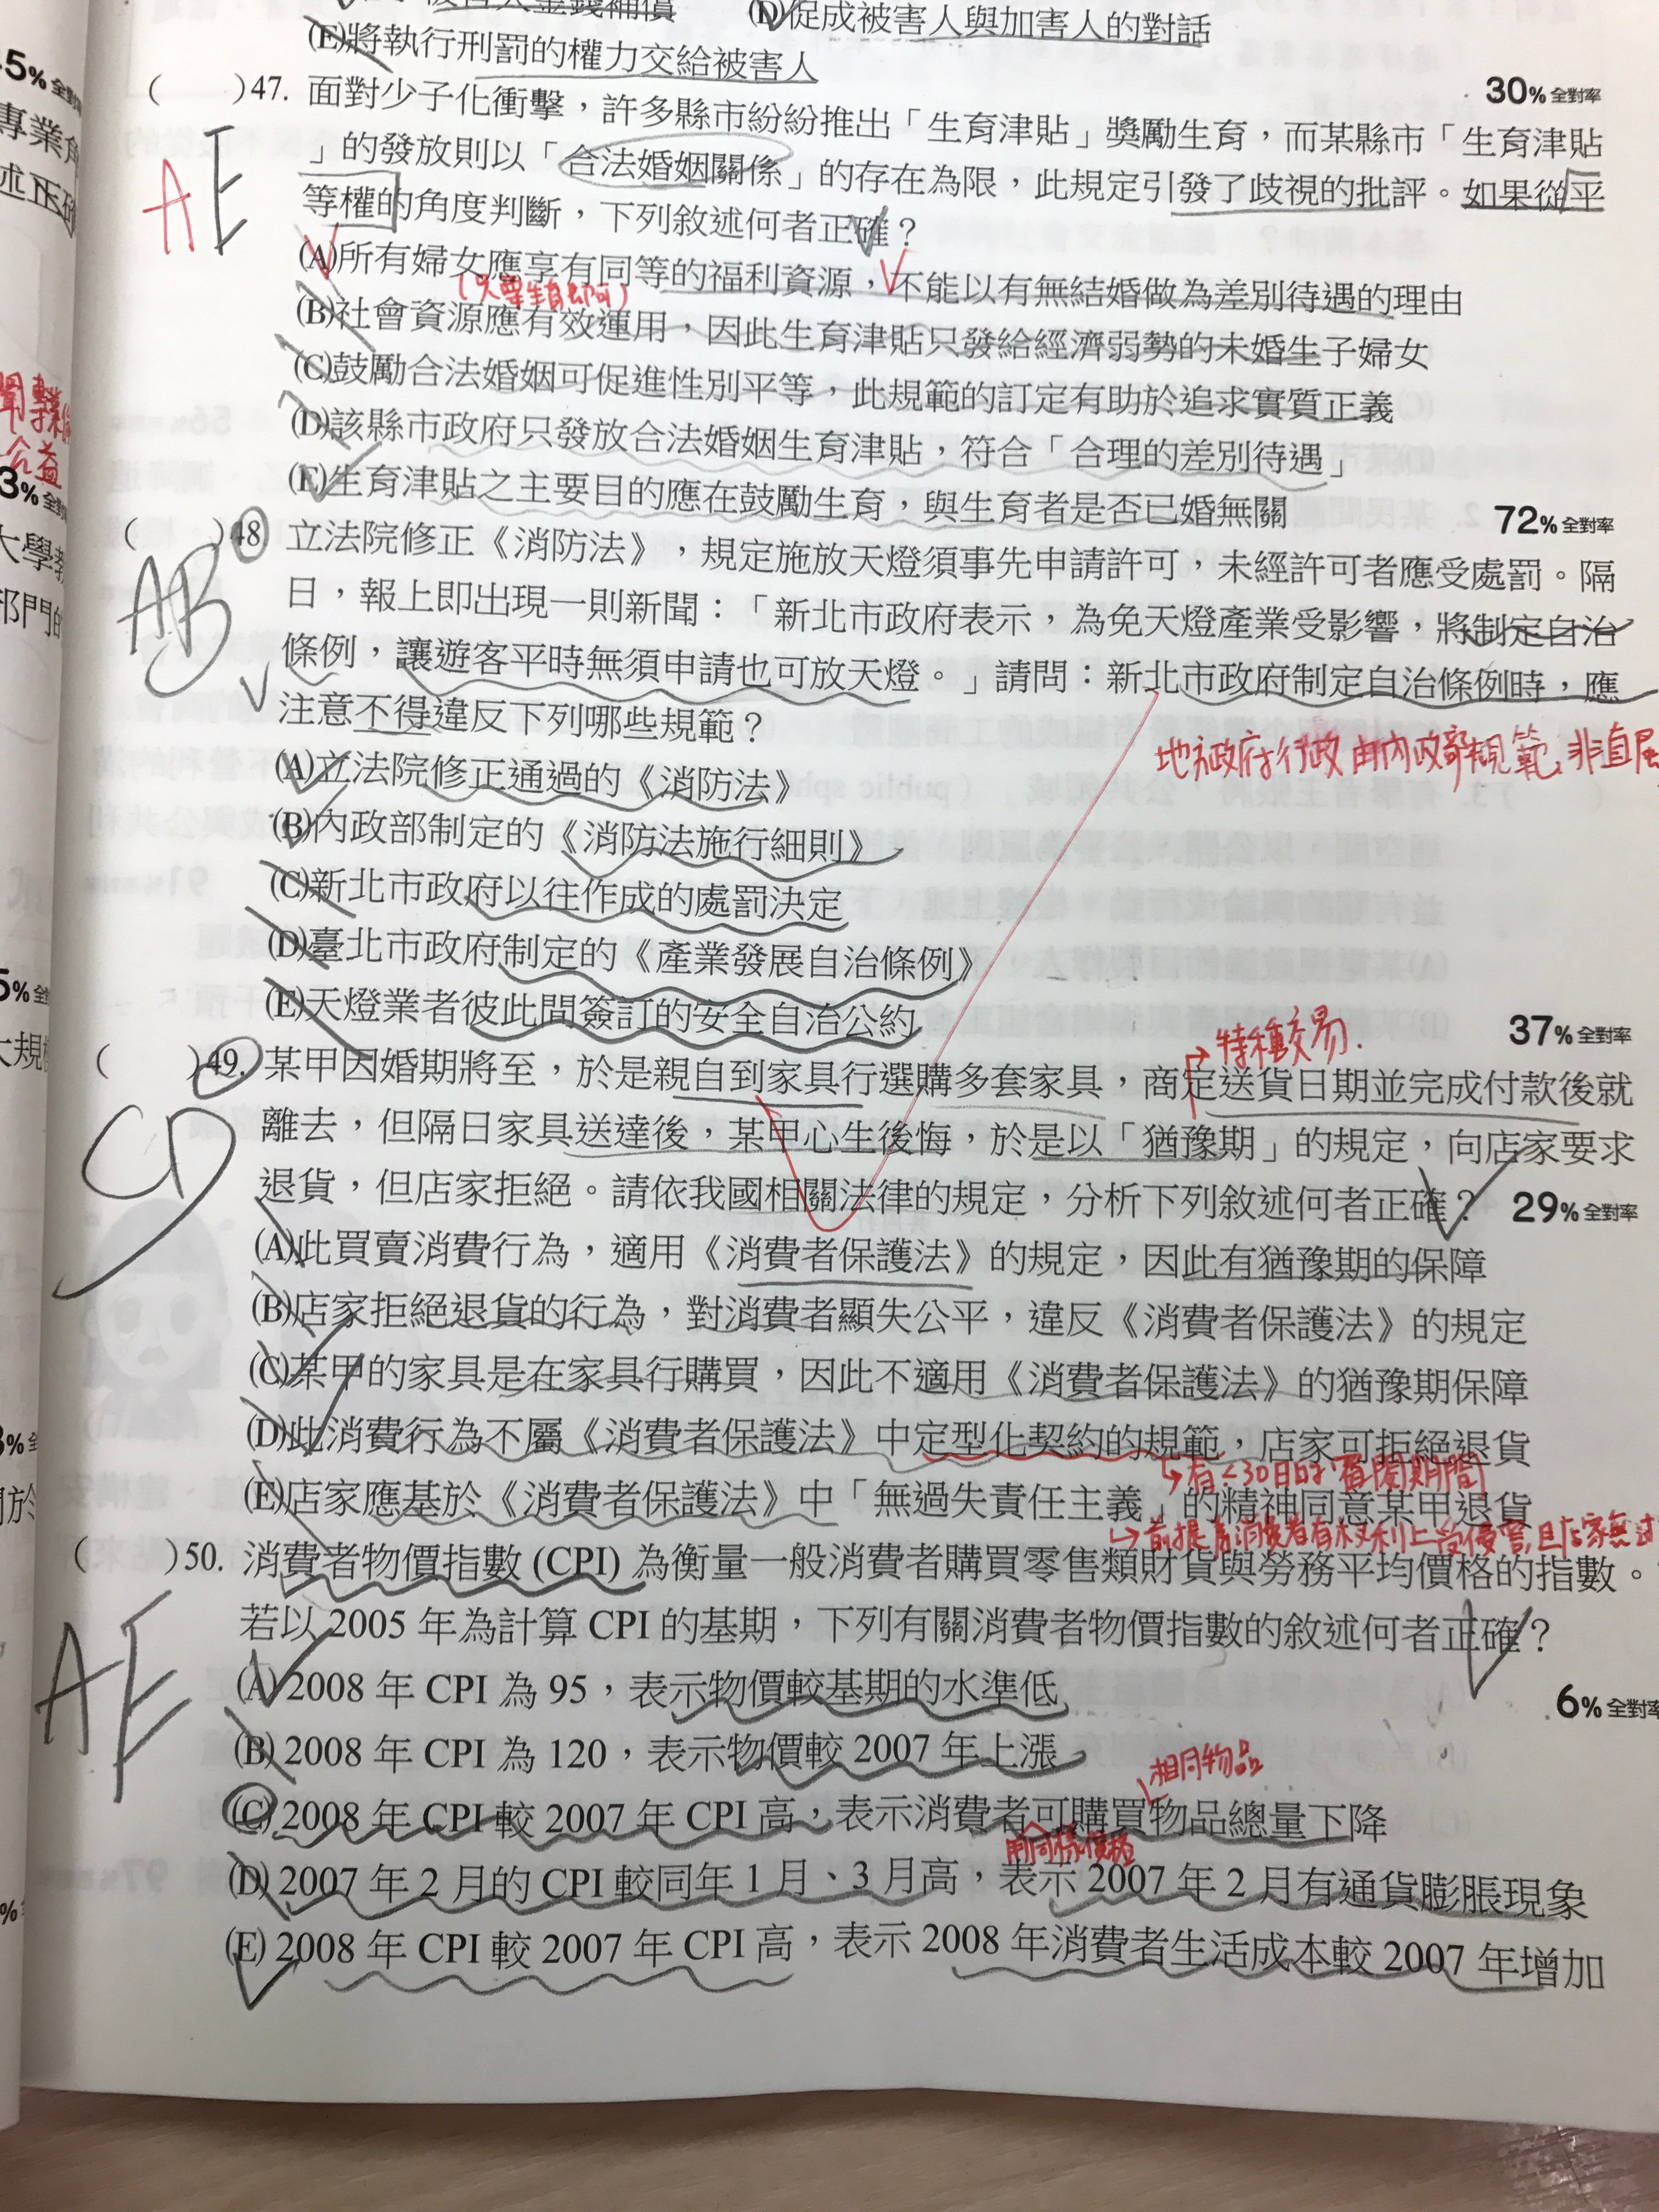 促成被害人與加害人的對話
(E)將執行刑罰的權力交給被害人
30%全對率
( )47. 面對少子化衝擊，許多縣市紛紛推出「生育津貼」獎勵生育，而某縣市「生育津貼
」的發放則以「合法婚姻關係」的存在為限，此規定引發了歧視的批評。如果從平
等權的角度判斷，下列敘述何者正確？
AE
(A)所有婦女應享有同等的福利資源，不能以有無結婚做為差別待遇的理由
(只要生育即可)
(B)社會資源應有效運用，因此生育津貼只發給經濟弱勢的未婚生子婦女
(C)鼓勵合法婚姻可促進性別平等，此規範的訂定有助於追求實質正義
(D)該縣市政府只發放合法婚姻生育津貼，符合「合理的差別待遇」
(E)生育津貼之主要目的應在鼓勵生育，與生育者是否已婚無關
72%全對率
( )48. 立法院修正《消防法》，規定施放天燈須事先申請許可，未經許可者應受處罰。隔
日，報上即出現一則新聞：「新北市政府表示，為免天燈產業受影響，將制定自治
條例，讓遊客平時無須申請也可放天燈。」請問：新北市政府制定自治條例時，應
注意不得違反下列哪些規範？
AB
地方政府行政由內政部規範，非直屬
(A)立法院修正通過的《消防法》
(B)內政部制定的《消防法施行細則》
(C)新北市政府以往作成的處罰決定
(D)臺北市政府制定的《產業發展自治條例》
(E)天燈業者彼此間簽訂的安全自治公約
37%全對率
特種交易.
( )49. 某甲因婚期將至，於是親自到家具行選購多套家具，商定送貨日期並完成付款後就
離去，但隔日家具送達後，某甲心生後悔，於是以「猶豫期」的規定，向店家要求
退貨，但店家拒絕。請依我國相關法律的規定，分析下列敘述何者正確？
29%全對率
CD
(A)此買賣消費行為，適用《消費者保護法》的規定，因此有猶豫期的保障
(B)店家拒絕退貨的行為，對消費者顯失公平，違反《消費者保護法》的規定
(C)某甲的家具是在家具行購買，因此不適用《消費者保護法》的猶豫期保障
(D)此消費行為不屬《消費者保護法》中定型化契約的規範，店家可拒絕退貨
有≤30日的審閱期間
(E)店家應基於《消費者保護法》中「無過失責任主義」的精神同意某甲退貨
前提為消費者有權利上的侵害，且店家無過
( )50. 消費者物價指數 (CPI) 為衡量一般消費者購買零售類財貨與勞務平均價格的指數。
若以 2005 年為計算 CPI 的基期，下列有關消費者物價指數的敘述何者正確？
AE
(A) 2008 年 CPI 為 95，表示物價較基期的水準低
6%全對率
(B) 2008 年 CPI 為 120，表示物價較 2007 年上漲
相同物品
(C) 2008 年 CPI 較 2007 年 CPI 高，表示消費者可購買物品總量下降
用同樣價格
(D) 2007 年 2 月的 CPI 較同年 1 月、3 月高，表示 2007 年 2 月有通貨膨脹現象
(E) 2008 年 CPI 較 2007 年 CPI 高，表示 2008 年消費者生活成本較 2007 年增加